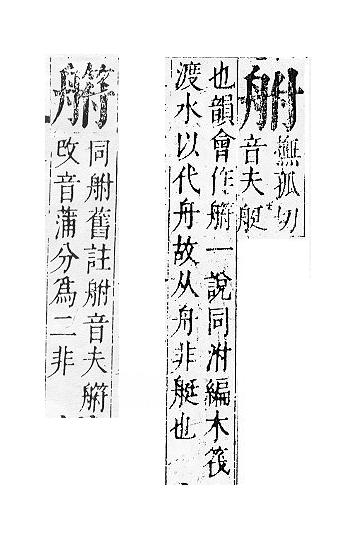 䑧
撫孤切
音夫艇
也韻會作一說同泭編木筏
渡水以代舟故从舟非艇也
同䑧舊註䑧音夫
改音蒲分為二非